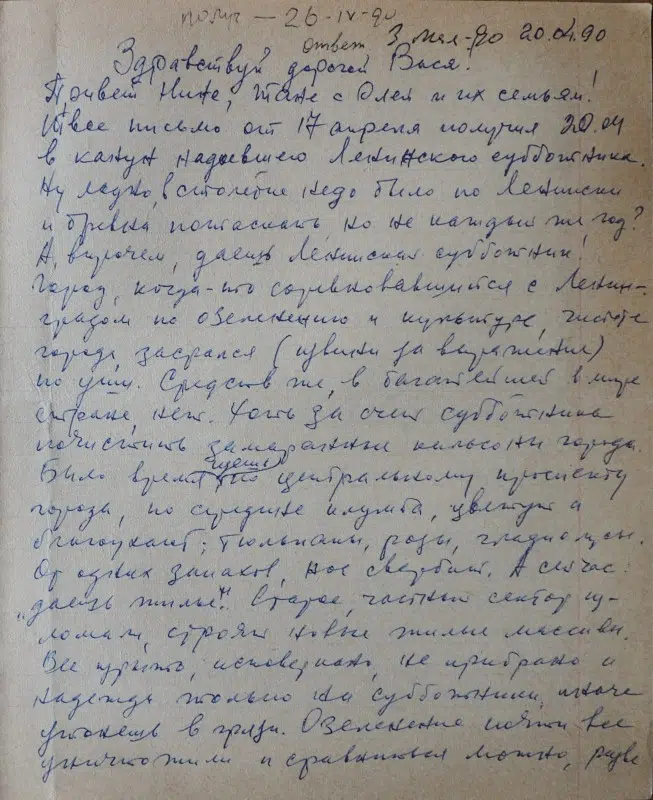 получ — 26-IV-90
ответ 3 мая-90 20.04.90
Здравствуй дорогой Вася!
Привет Нине, Тане с Олей и их семьям!
Твое письмо от 17 апреля получил 20.04
в канун надоевшего Ленинского субботника.
Ну ладно, в столетие надо было по Ленински
и бревна потаскать, но не каждый же год?
А, впрочем, даешь Ленинский субботник!
Город, когда-то соревновавшийся с Ленин-
градом по озеленению и культуре, чистоте
города, засрался (извини за выражение)
по уши. Средств же, в богатейшей в мире
стране, нет. Хоть за счет субботника
почистить замаранные кальсоны города.
Было время, идешь по центральному проспекту
города, по средине клумба, цветут и
благоухают: тюльпаны, розы, гладиолусы.
От одних запахов, нос свербит. А сейчас:
"даешь жилье". Старое, частный сектор из-
ломали, строят новые жилые массивы.
Все изрыто, исковеркано, не прибрано и
надежда только на субботники, иначе
утонешь в грязи. Озеленение почти все
уничтожили и сравниться можно, разве